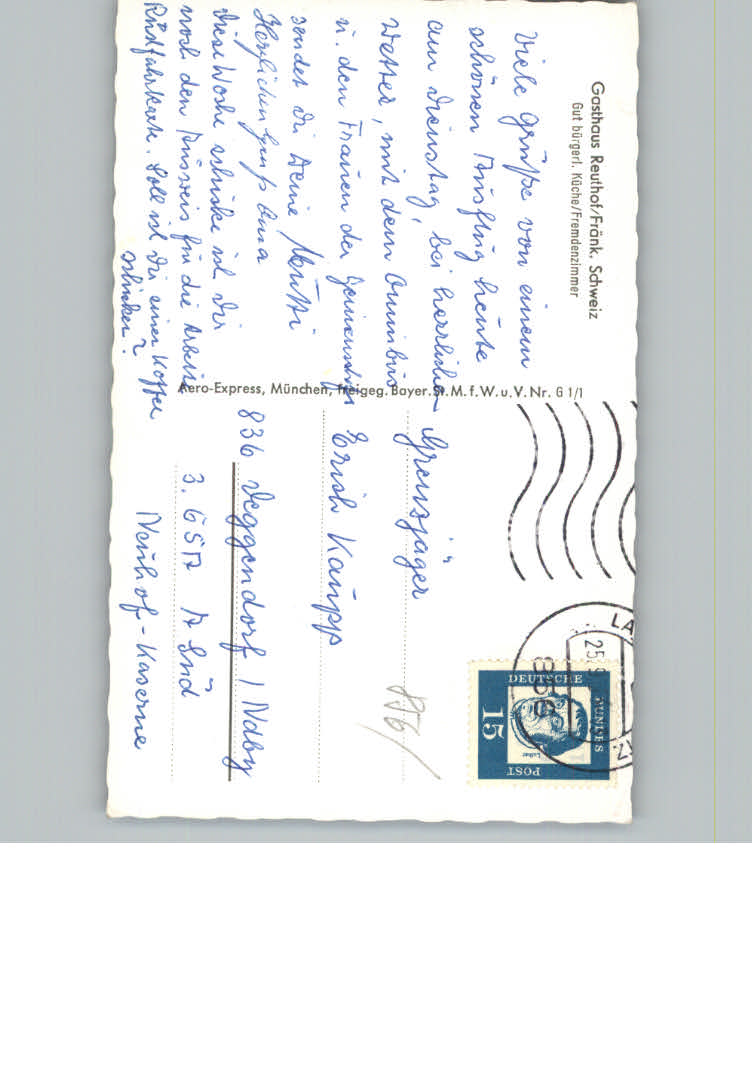 Gasthaus Reuthof/Fränk. Schweiz
Gut bürgerl. Küche/Fremdenzimmer
Viele Grüße von einem
schönen Ausflug heute
am Dienstag, bei herrlichen
Wetter, mit dem Omnibus
u. den Frauen der
sendet Dir Deine Mutti
Herzlichen Gruß
diese Woche schicke ich Dir
noch den Ausweis für die Arbeiter
Rückfahrkarte. Soll ich Dir einen Koffer
schicken?
Aero-Express, München, freigeg. Bayer.St.M.f.W.u.V.Nr. G 1/1
Grenzjäger
Erich Kaupp
836 Deggendorf / Ndby
3. GSA A Süd
Neuhof-Kaserne
856/
DEUTSCHE
BUNDES
POST
15
Luther
LA
25.9